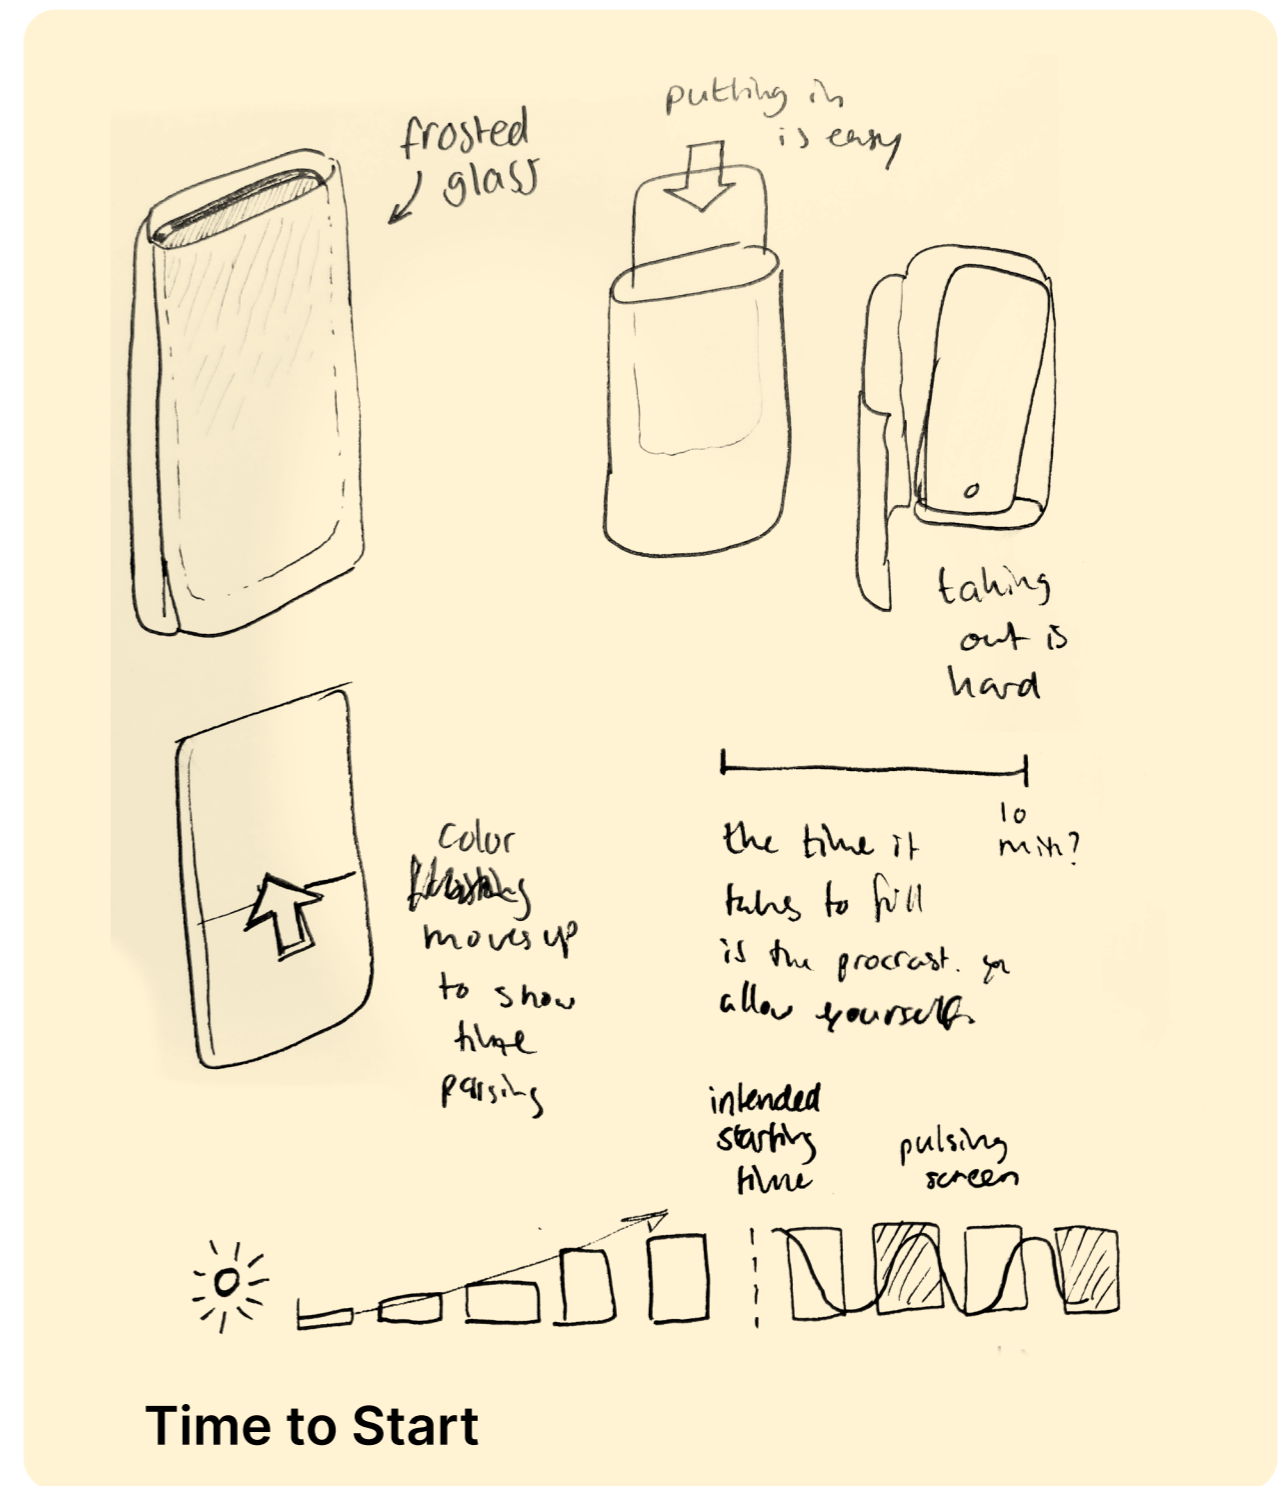 frosted
glass
putting in
is easy
taking
out is
hard
color
moves up
to show
time
passing
10
min?
the time it
takes to fill
is the procrast. you
allow yourself.
intended
starting
time
pulsing
screen
Time to Start